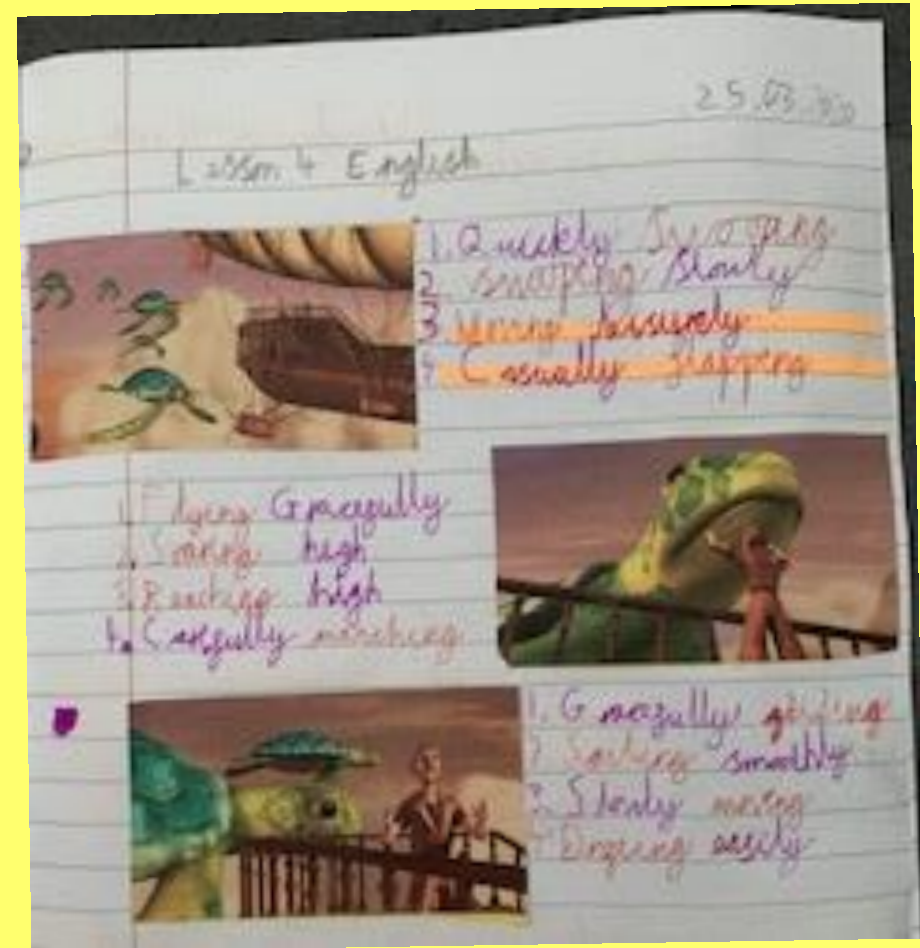 25.03.
Lesson 4 English
1. Quickly
2. snapping slowly
3 leisurely
4 Casually flapping
1. Flying Gracefully
2. Soaring high
3. Reaching high
4. Carefully marching
1. Gracefully gliding
2 smoothly
3. Slowly moving
easily